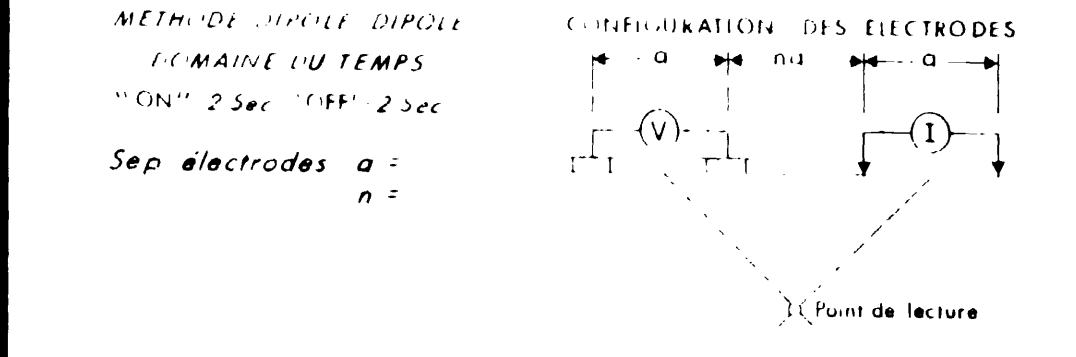 METHODE DIPOLE DIPOLE
DOMAINE DU TEMPS
"ON" 2 Sec "OFF" 2 Sec
Sep électrodes a =
n =
CONFIGURATION DES ELECTRODES
a na a
V I
Point de lecture